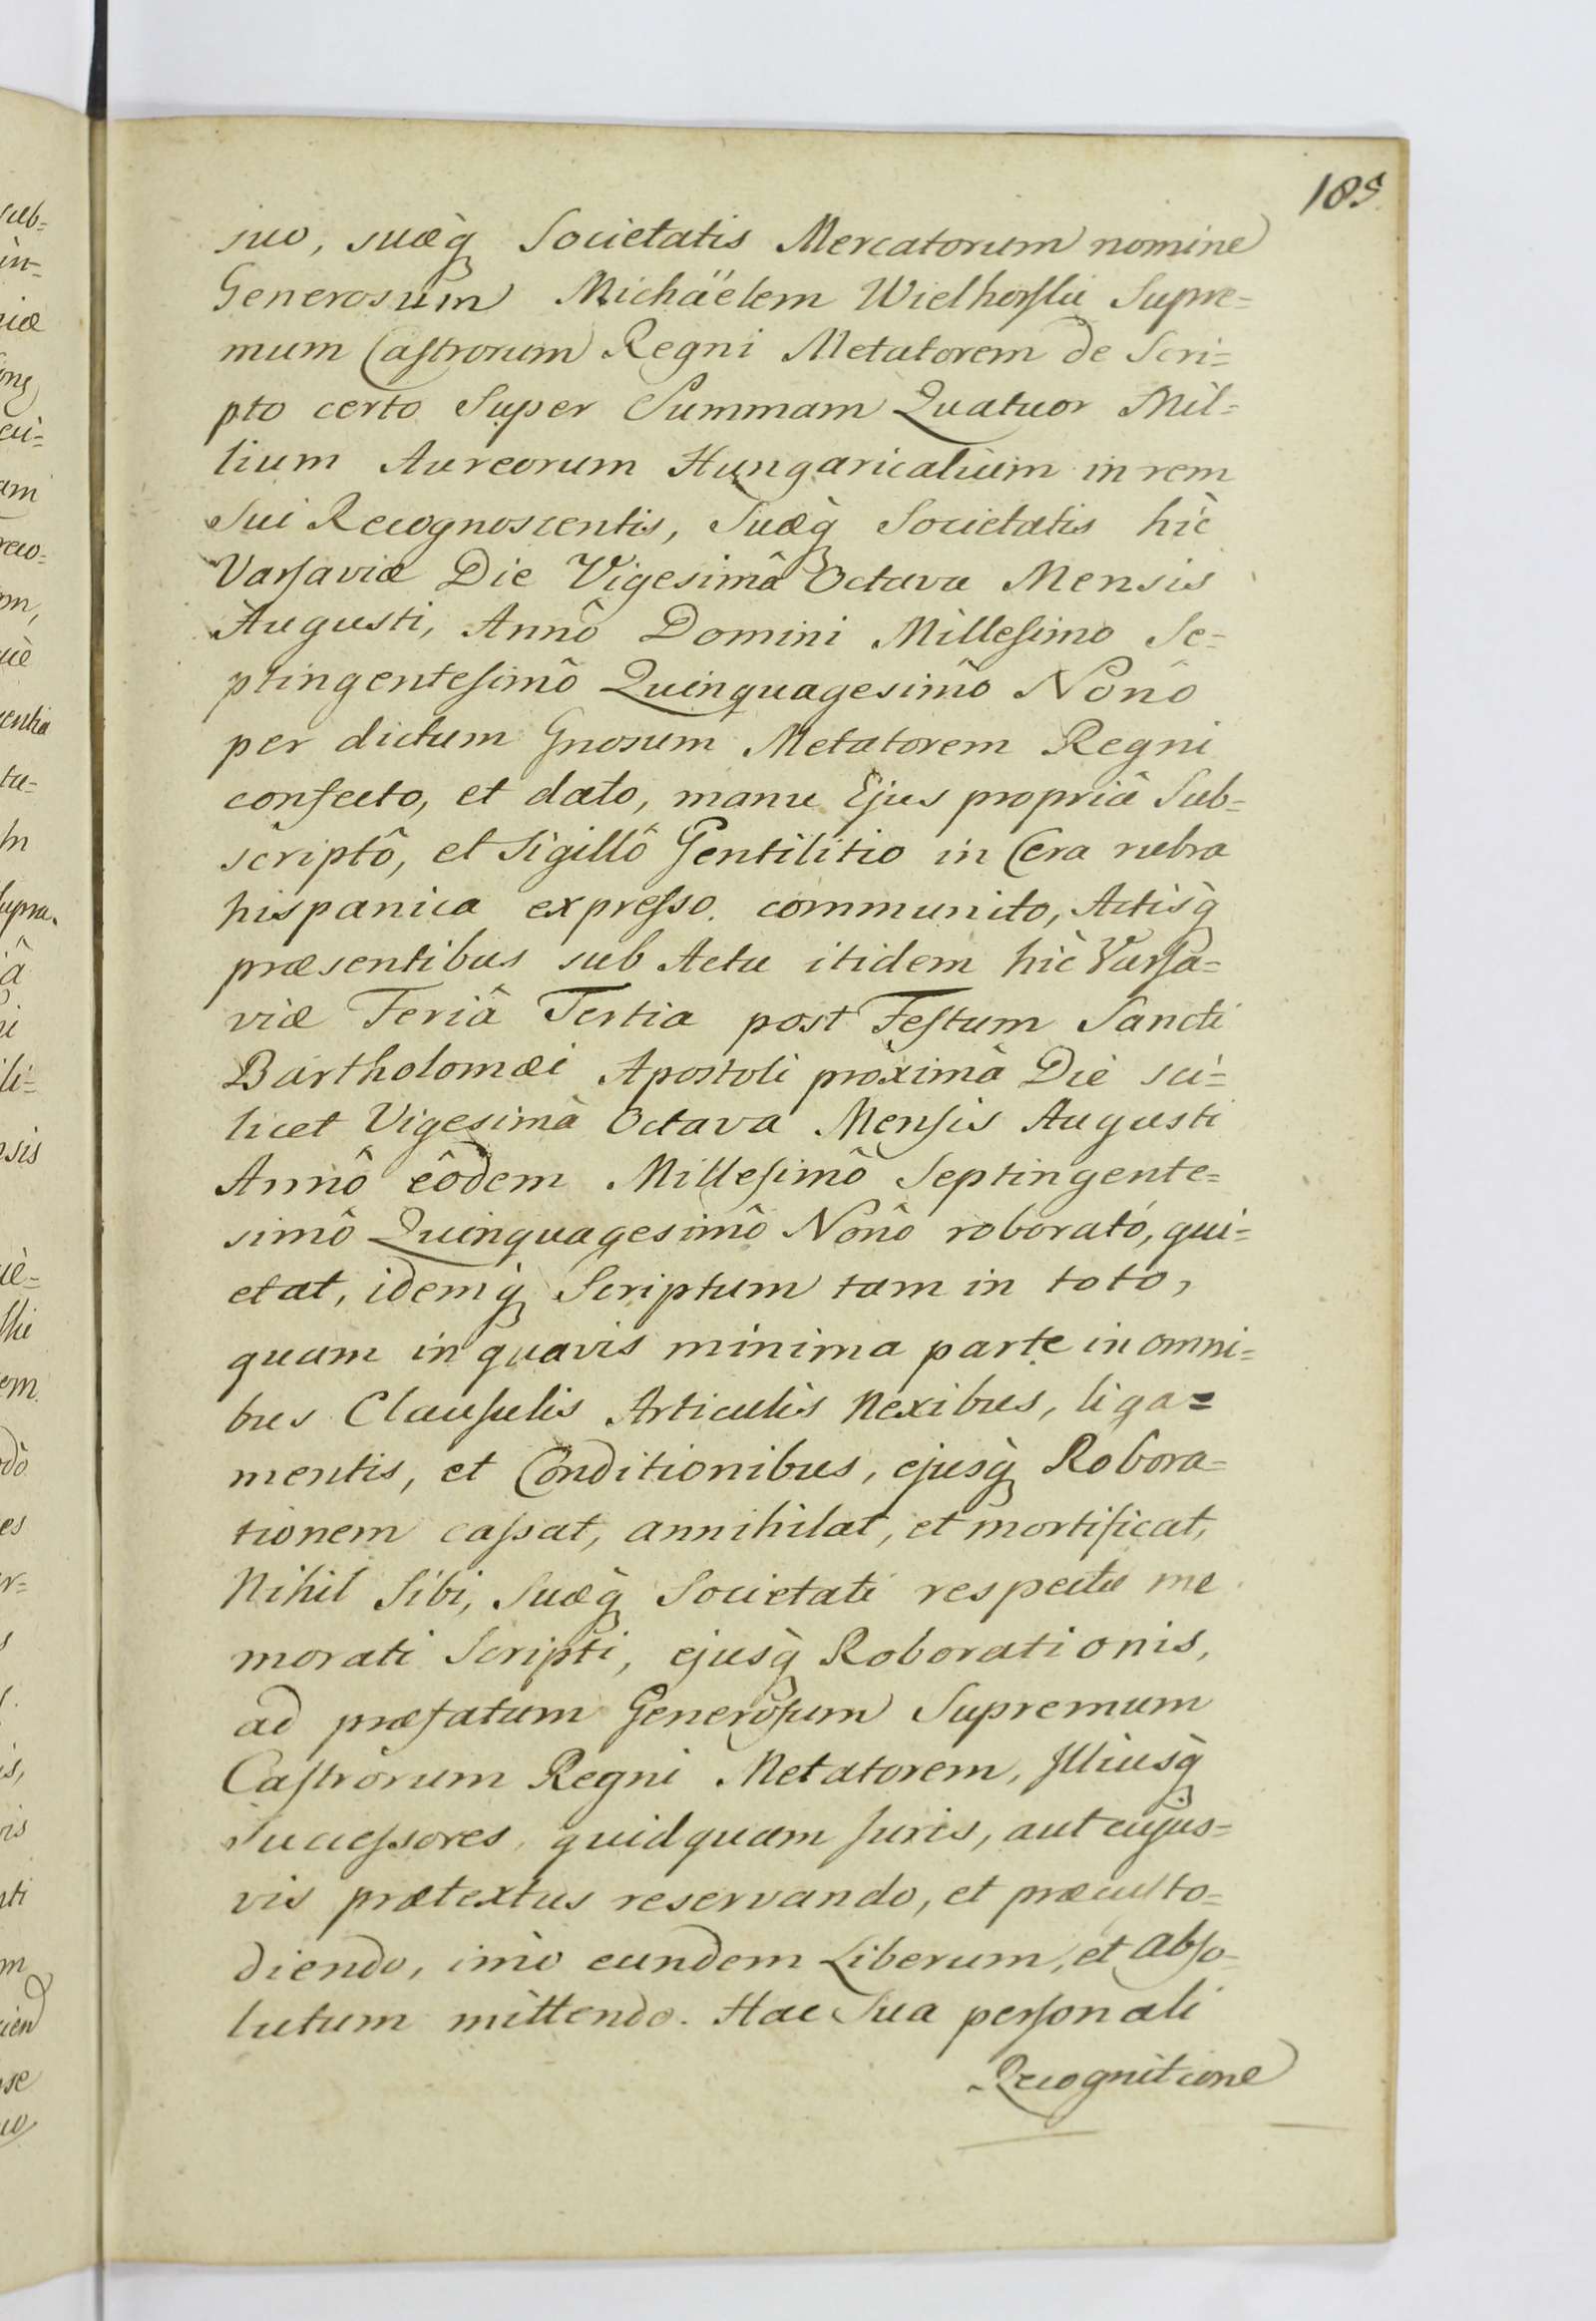 185.
suo, suæq̀ Societatis Mercatorum nomine
Generosum Michäelem Wielhorski Supre=
mum Castrorum Regni Metatorem de Scri=
pto certo Super Summam Quatuor Mil=
lium Aureorum Hungaricalium in rem
Sui Recognoscentis, Suæq̀ Societatis hìc
Varsaviæ Die Vigesimâ Octava Mensis
Augusti, Annô Domini Millesimo Se=
ptingentesimô Quinquagesimô Nonô
per dictum Gnosum Metatorem Regni
confecto, et dato, manu Ejus propriâ Sub=
scriptô, et Sigillô Gentilitio in Cera rubra
hispanica expresso communito, Actisq̀
præsentibus sub Actu itidem hìc Varsa=
viæ Feriâ Tertia post Festum Sancti
Bartholomæi Apostoli proximà Die sci=
licet Vigesimà Octava Mensis Augusti
Annô eôdem Millesimô Septingente=
simô Quinquagesimô Nonô roborato, qui=
etat, idemq̀ Scriptum tam in toto,
quam in quavis minima parte in omni=
bus Clausulis Articulis Nexibus, liga=
mentis, et Conditionibus, ejusq̀ Robora=
tionem cassat, annihilat, et mortificat,
Nihil Sibi, Suæq̀ Societati respectu me
morati Scripti, ejusq̀ Roborationis,
ad præfatum Generosum Supremum
Castrorum Regni Metatorem, Illiusq̀
Successores quidquam Juris, aut cujus=
vis prætextus reservando, et præcusto=
diendo, imò eundem Liberum, et Abso=
lutum mittendo. Hac Sua personali
Recognitione